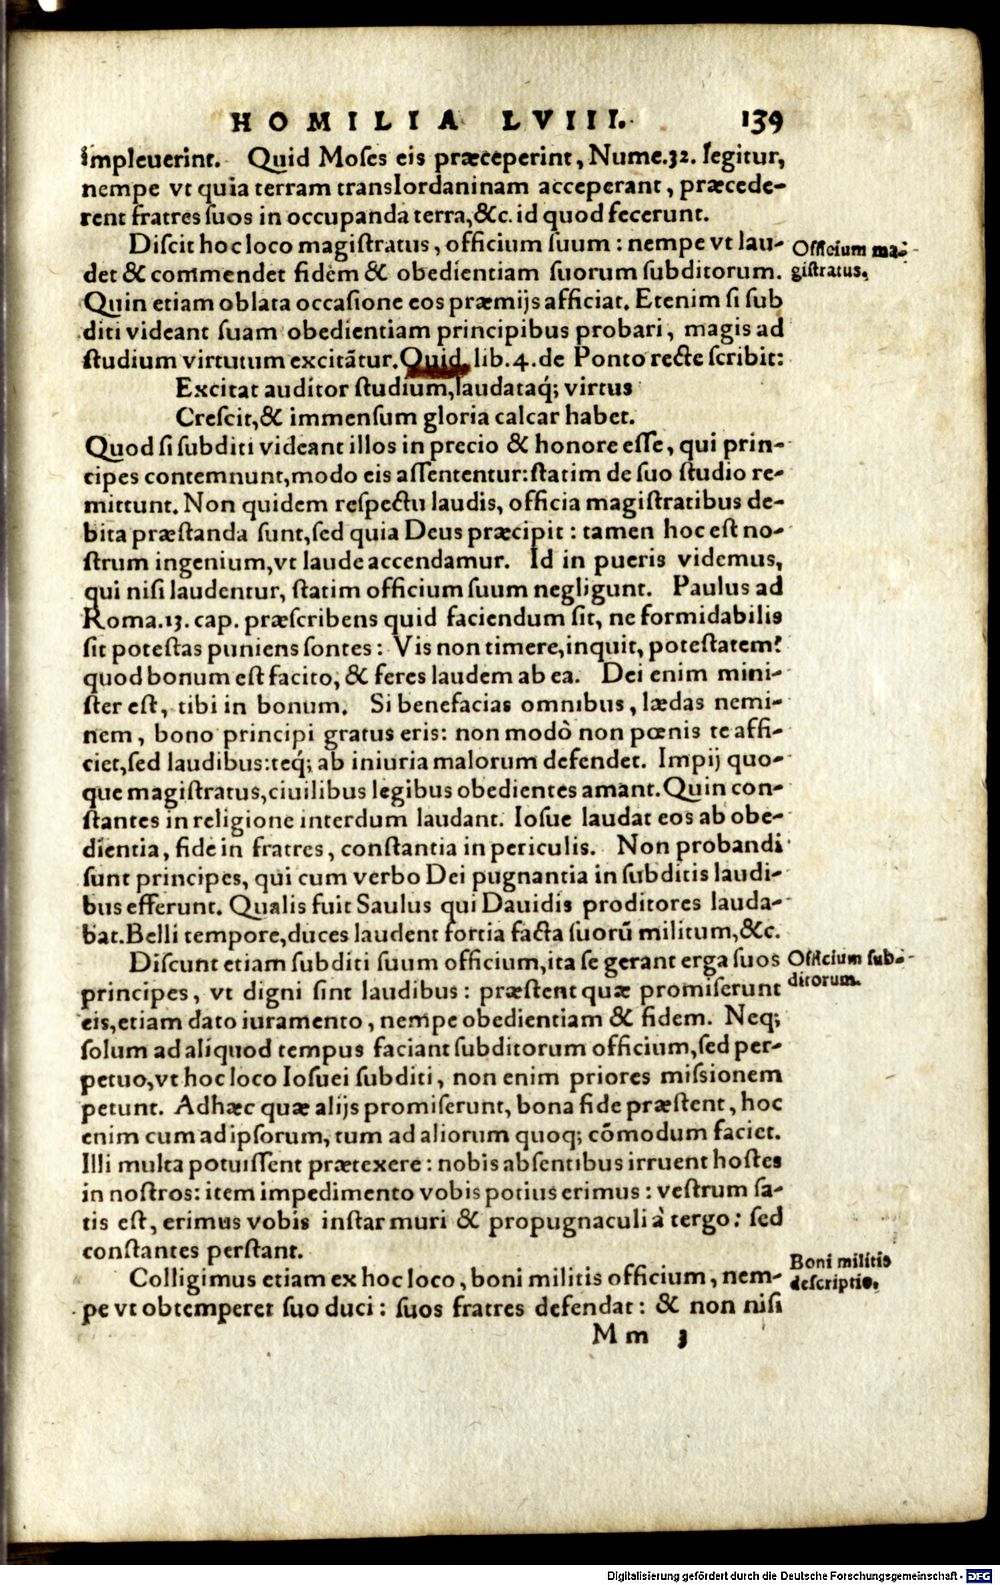 HOMILIA LVIII. 139
impleuerint. Quid Moses eis præceperint, Nume.32. legitur,
nempe vt quia terram transIordaninam acceperant, præcede-
rent fratres suos in occupanda terra, &c. id quod fecerunt.
Discit hoc loco magistratus, officium suum: nempe vt lau-
Officium ma-
det & commendet fidem & obedientiam suorum subditorum.
gistratus.
Quin etiam oblata occasione eos præmijs afficiat. Etenim si sub
diti videant suam obedientiam principibus probari, magis ad
studium virtutum excitātur. Ouid. lib. 4. de Ponto recte scribit:
Excitat auditor studium, laudataq́; virtus
Crescit, & immensum gloria calcar habet.
Quod si subditi videant illos in precio & honore esse, qui prin-
cipes contemnunt, modo eis assententur: statim de suo studio re-
mittunt. Non quidem respectu laudis, officia magistratibus de-
bita præstanda sunt, sed quia Deus præcipit: tamen hoc est no-
strum ingenium, vt laude accendamur. Id in pueris videmus,
qui nisi laudentur, statim officium suum negligunt. Paulus ad
Roma.13. cap. præscribens quid faciendum sit, ne formidabilis
sit potestas puniens sontes: Vis non timere, inquit, potestatem?
quod bonum est facito, & feres laudem ab ea. Dei enim mini-
ster est, tibi in bonum. Si benefacias omnibus, lædas nemi-
nem, bono principi gratus eris: non modò non pœnis te affi-
ciet, sed laudibus: teq́; ab iniuria malorum defendet. Impij quo-
que magistratus, ciuilibus legibus obedientes amant. Quin con-
stantes in religione interdum laudant. Iosue laudat eos ab obe-
dientia, fide in fratres, constantia in periculis. Non probandi
sunt principes, qui cum verbo Dei pugnantia in subditis laudi-
bus efferunt. Qualis fuit Saulus qui Dauidis proditores lauda-
bat. Belli tempore, duces laudent fortia facta suorū militum, &c.
Discunt etiam subditi suum officium, ita se gerant erga suos
Officium sub-
principes, vt digni sint laudibus: præstent quæ promiserunt
ditorum.
eis, etiam dato iuramento, nempe obedientiam & fidem. Neq;
solum ad aliquod tempus faciant subditorum officium, sed per-
petuo, vt hoc loco Iosuei subditi, non enim priores missionem
petunt. Adhæc quæ alijs promiserunt, bona fide præstent, hoc
enim cum ad ipsorum, tum ad aliorum quoq; cōmodum faciet.
Illi multa potuissent prætexere: nobis absentibus irruent hostes
in nostros: item impedimento vobis potius erimus: vestrum sa-
tis est, erimus vobis instar muri & propugnaculi à tergo: sed
constantes perstant.
Colligimus etiam ex hoc loco, boni militis officium, nem-
Boni militis
descriptio.
pe vt obtemperet suo duci: suos fratres defendat: & non nisi
Mm 3
Digitalisierung gefördert durch die Deutsche Forschungsgemeinschaft - DFG